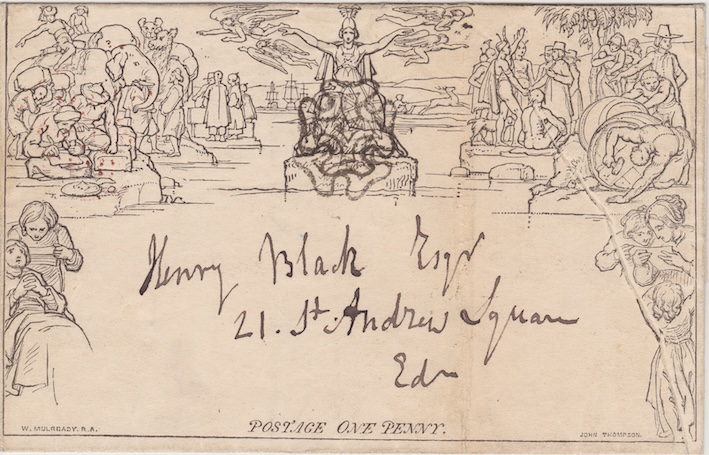 Henry Black Esqr
21. St. Andrew Square
Edr
POSTAGE ONE PENNY.
W. MULREADY. R.A.
JOHN THOMPSON.